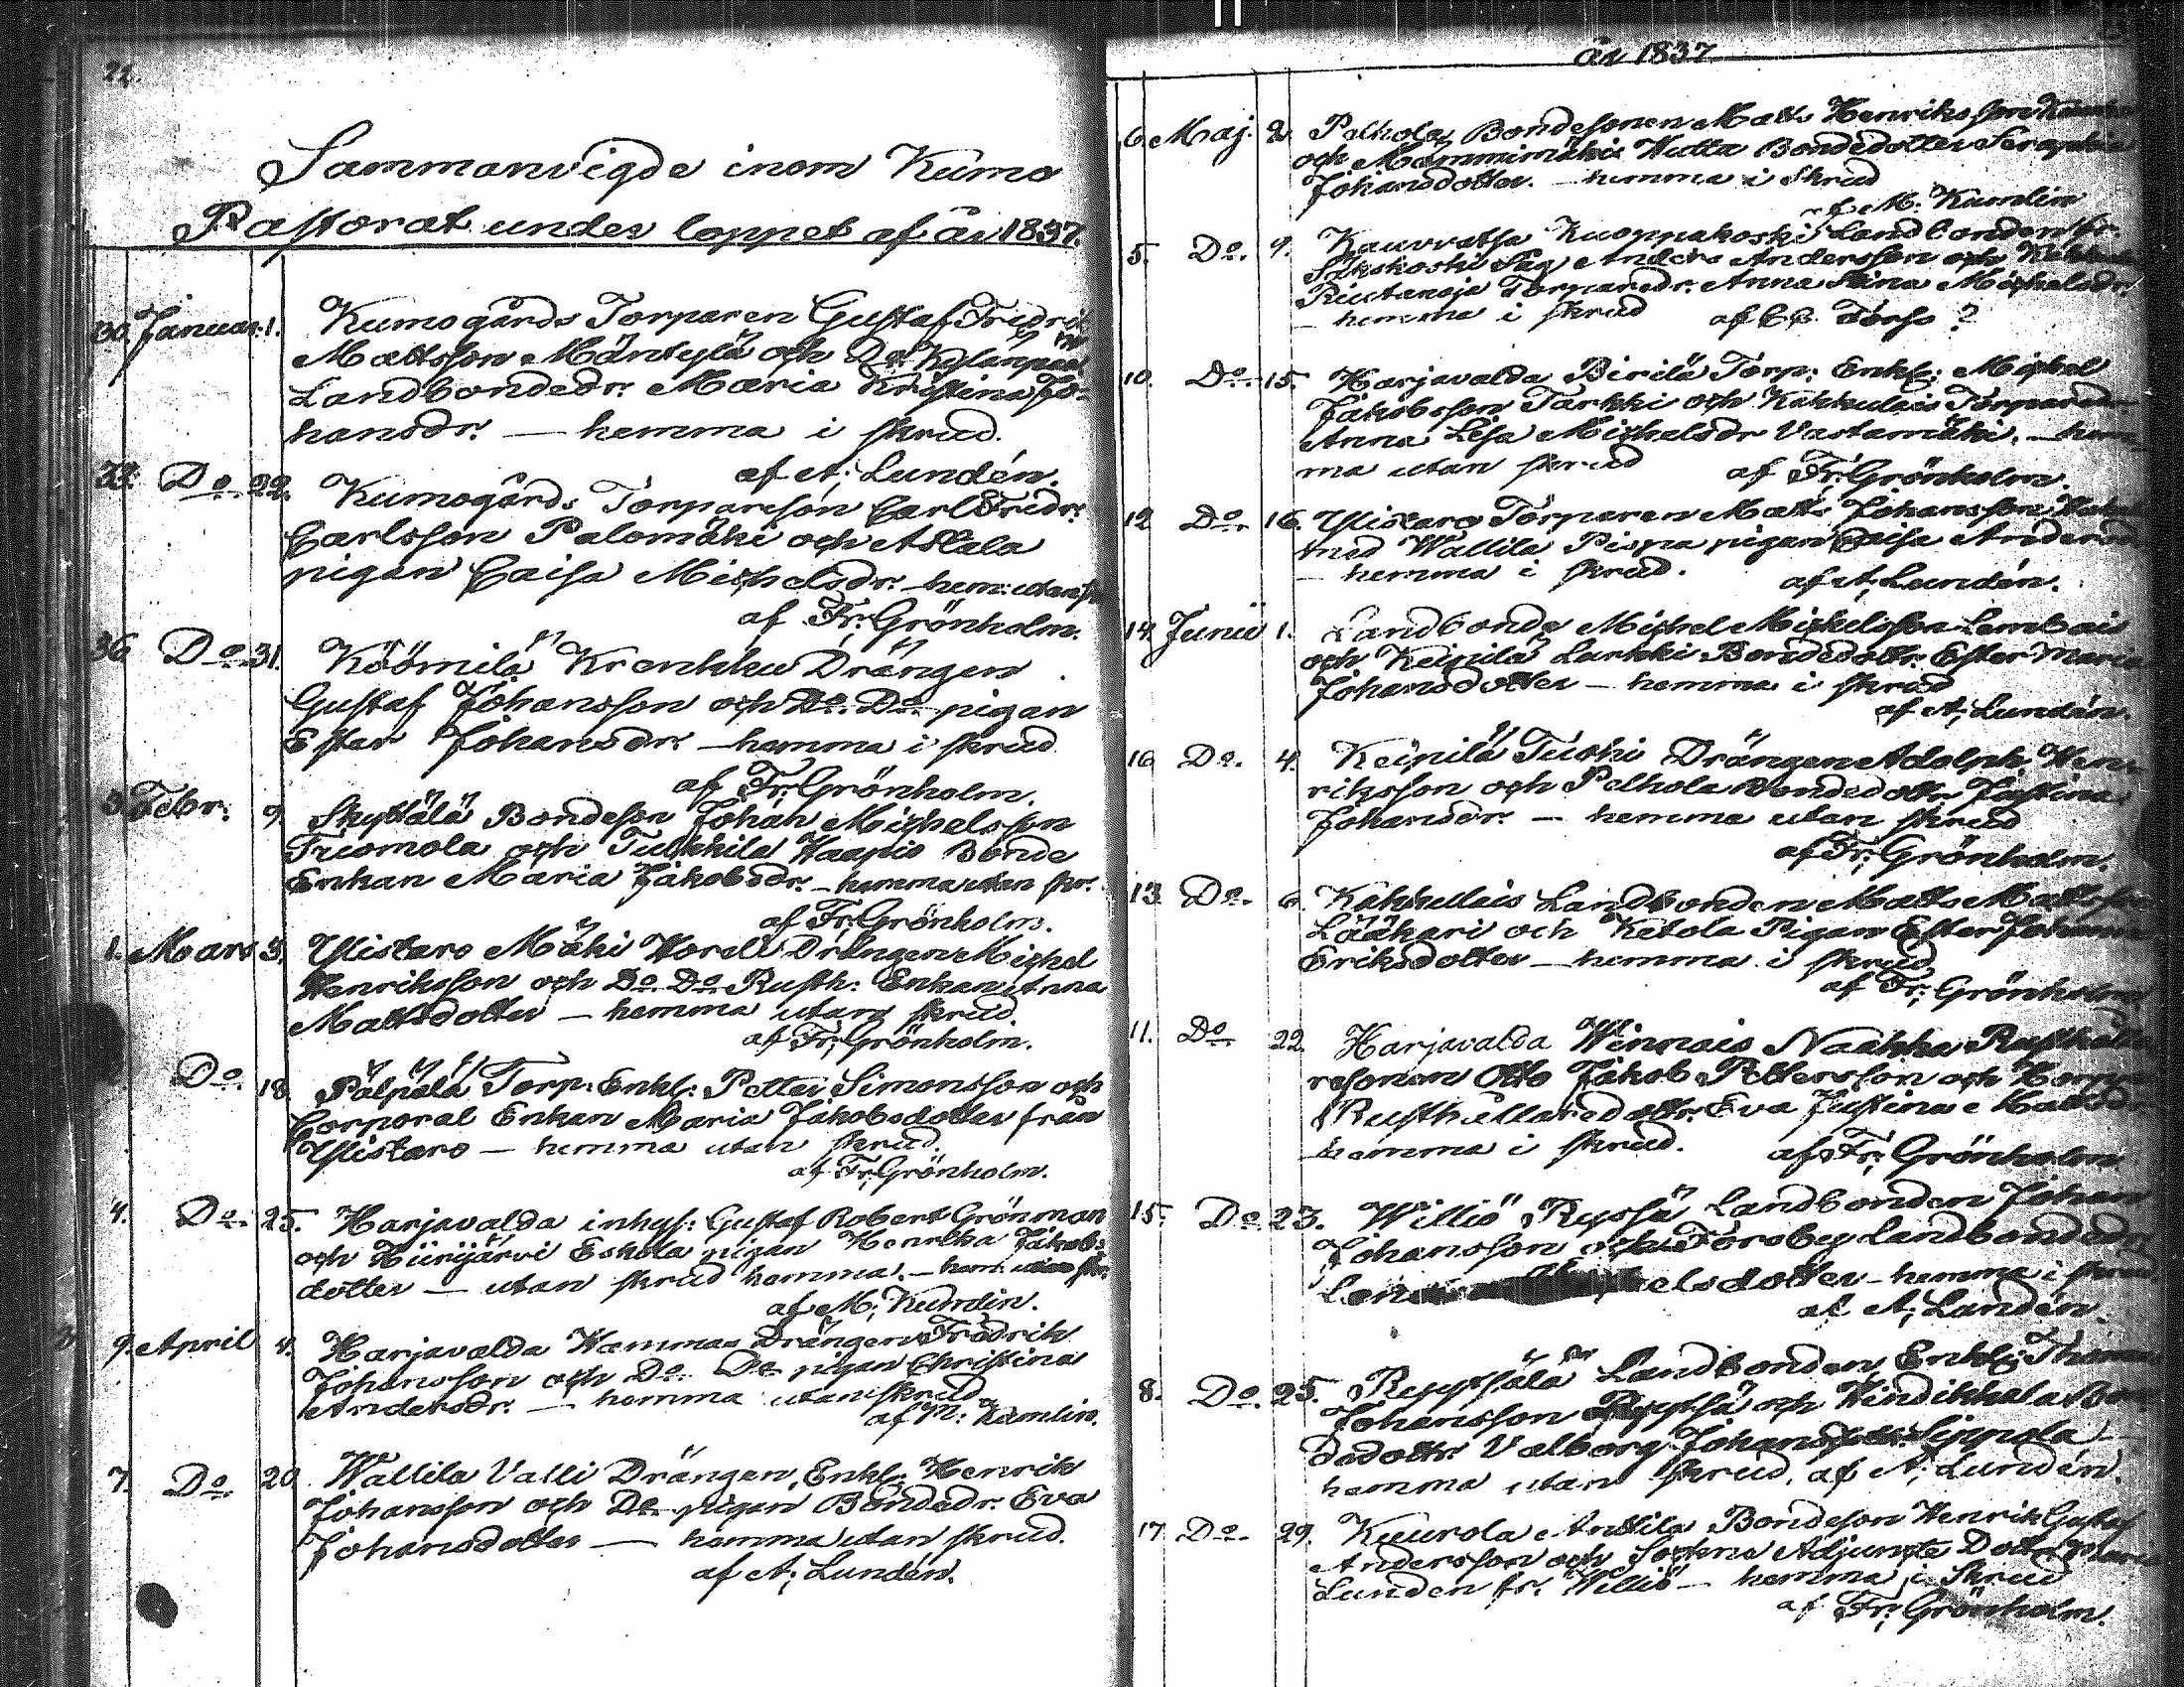 22.
Sammanvigde inom Kumo
Pastorat under loppet af år 1837.
30. Januar. 1. Kumogårds Torparen Gustaf Fredrik
Mattsson Mäntylä och Do
Landbondedr. Maria Kristina Jo-
hansdr. — hemma i skrud.
af A; Lundén.
33. Do. 22. Kumogårds Torpareson Carl Fredr.
Carlsson Palomäki och Aslala
pigan Caisa Michelsdr. hem: utan
af Fr; Grönholm.
36 Do. 31. Köömilä Krenkku Drängen
Gustaf Johansson och Do. Do. pigan
Ester Johansdr. — hemma i skrud
af Fr; Grönholm.
3 Febr. 9. Skyttälä Bondeson Johan Michelsson
Friomola och Tulkkila Haapio Bonde
Enkan Maria Jakobsdr. — hemma utan skr.
af Fr; Grönholm.
1. Mars 5. Ylistaro Mäki Hoxell Drängen Michel
Henriksson och Do. Do. Rusth: Enkan Anna
Mattsdotter — hemma utan skrud.
af Fr; Grönholm.
Do. 18 Pälpälä Torp: Enkl: Petter Simonsson och
Corporal Enkan Maria Jakobsdotter från
Ylistaro — hemma utan skrud.
af Fr; Grönholm.
4. Do. 25. Harjavalda inhys: Gustaf Robert Grönman
och Hiirijärvi Eskola pigan Henrika Jakobs
dotter — utan skrud hemma. — hem: utan skr.
af M; Kumlin.
9. April 4. Harjavalda Hammas Drängen Fredrik
Johansson och Do. Do pigan Christina
Andersdr. — hemma utan skrud
af M: Kumlin.
7. Do 20. Wallila Valli Drängen, Enkl: Henrik
Johansson och Do pigan Bondedr. Eva
Johansdotter — hemma utan skrud.
af A; Lundén.
år 1837
6. Maj. 2. Pelhola Bondesonen Matts Henriksson
och Mammimäki Hutta Bondedotter Seraphia
Johansdotter. — hemma i skrud
af M. Kumlin
5. Do. 9. Kauvatsa Kuoppakoski Landbonden fr.
Säkskoski Såg Anders Andersson och
Riutanoja Torparedr. Anna Stina Michelsdr.
— hemma i skrud af Torso ?
10. Do. 15. Harjavalda Pirilä Torp: Enkl: Michel
Jakobsson Tarkki och Kakkulais
Anna Lisa Michelsdr Vastamäki. — hem
ma utan skrud af Fr; Grönholm.
12 Do. 16. Ylistaro Torparen Matts Johansson
med Wallila Pispa pigan Caisa
— hemma i skrud. af A; Lundén.
14. Junii 1. Landbonde Michel Michelsson Lembois
och Keipilä Larkki Bondedottr. Ester Maria
Johansdotter — hemma i skrud
af A; Lundén.
16 Do. 4. Keipilä Tuoki Drängen Adolph Hen-
riksson och Pelhola Bondedottr. Justina
Johansdr. — hemma utan skrud
af Fr; Grönholm.
13. Do. 6. Kakkulais Landbonden Matts Mattsson
Lääkari och Ketola Pigan Ester
Eriksdotter — hemma i skrud
af Fr; Grönholm
11. Do 22. Harjavalda Winnais Naakka
resonen Otto Jakob Pettersson och
Rusthållaredottr. Eva Justina
hemma i skrud. af Fr; Grönholm
15. Do. 23. Williö Ryssä Landbonden Johan
Johansson och Forsby Landbondedr
elsdotter — hemma i skrud
af A; Lundén.
8. Do. 25. Ryytsälä Landbonden, Enkl: Thomas
Johansson Ryytsä och Hindikkala
dedottr. Valborg Sippola
hemma utan skrud, af A; Lundén.
17. Do. 29. Kuurola Anttila Bondeson Henrik Gustaf
Andersson och Sockne Adjuncte Dottr.
Lunden fr. Williö — hemma i Skrud
af Fr; Grönholm.